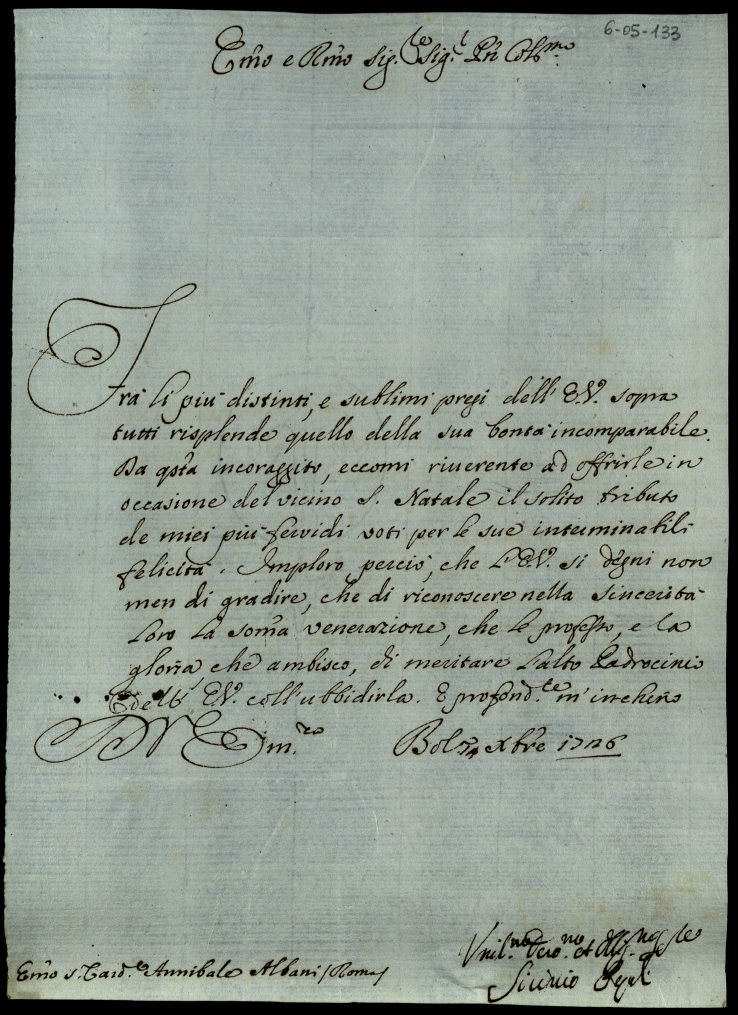 6-05-133
Emo e Rmo Sig.re Sig.r Prn Colmo
Tra' li piu' distinti, e sublimi pregi dell' E.V. sopra
tutti risplende quello della sua bontà incomparabile.
Da qsta incoraggito, eccomi riverente ad offrirle in
occasione del vicino S. Natale il solito tributo
de miei piu' fervidi voti per le sue interminabili
felicità. Imploro perciò, che l'E.V. si degni non
men di gradire, che di riconoscere nella sincerità
loro la soma venerazione, che le professo, e la
gloria, che ambisco, di meritare l'alto Padrocinio
dell' E.V. coll'ubbidirla. E profond.te m'inchino
D V Em.za
Bolz. Xbre 1726
Vmil.mo Devo.mo et
Emo S. Card.le Annibale Albani / Roma /